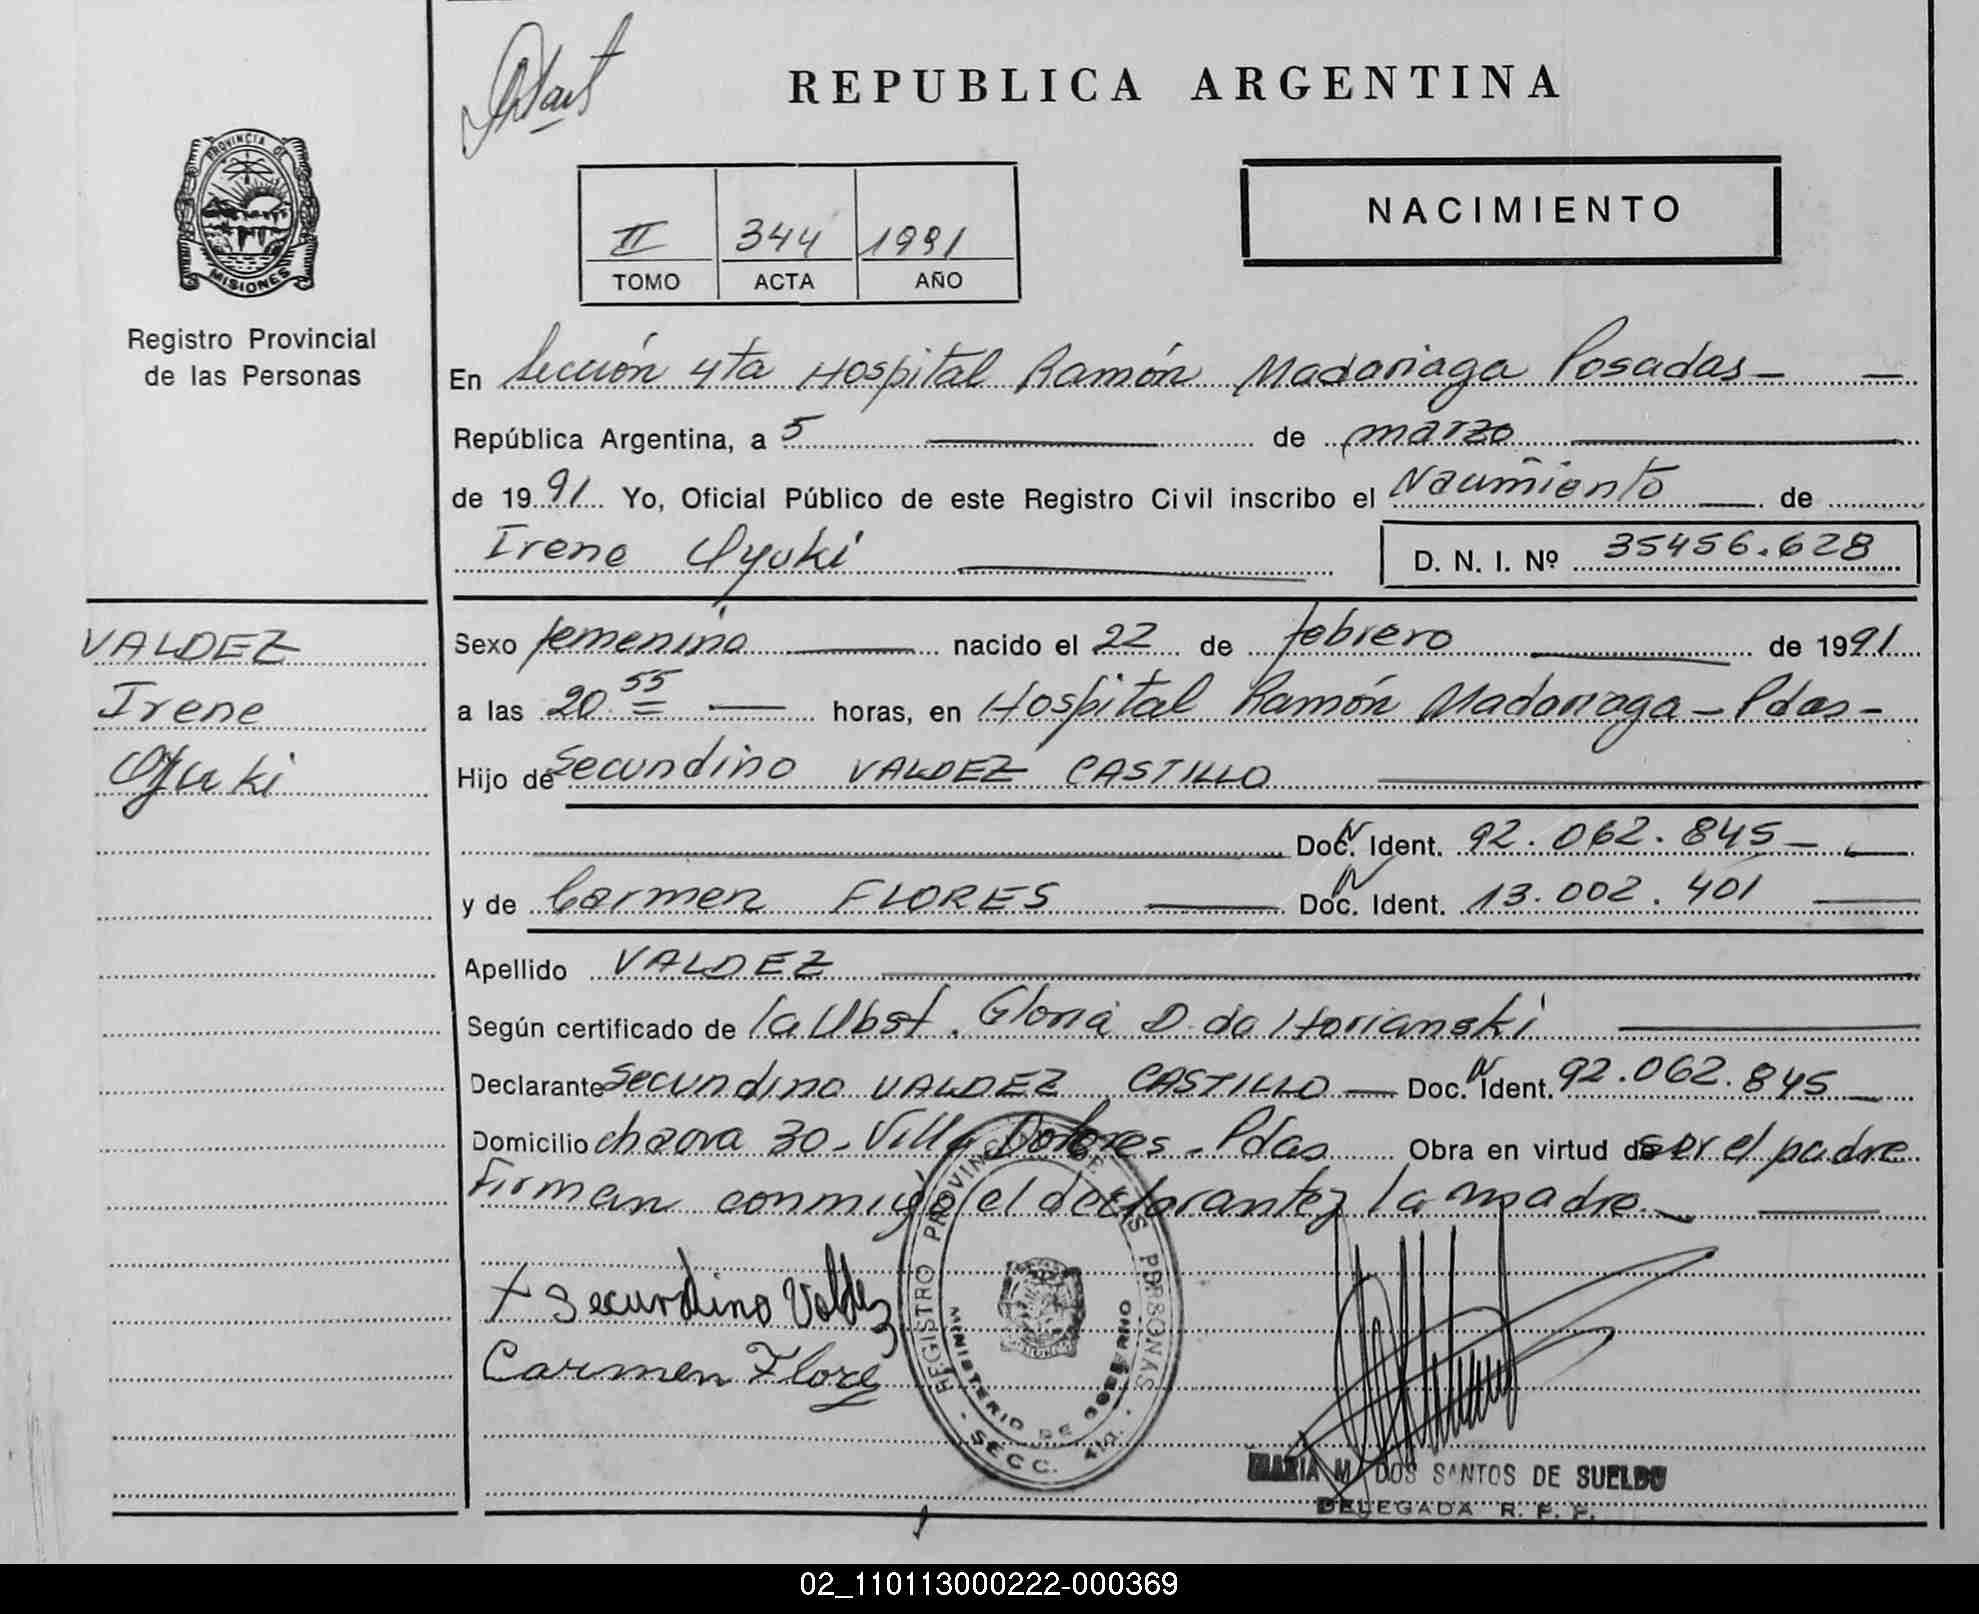 REPUBLICA ARGENTINA
PROVINCIA DE
MISIONES
Registro Provincial
de las Personas
II 344 1991
TOMO ACTA AÑO
NACIMIENTO
En Sección 4ta Hospital Ramón Madariaga Posadas -
República Argentina, a 5 de marzo
de 1991 Yo, Oficial Público de este Registro Civil inscribo el Nacimiento de
Irene Oyuki
D. N. I. Nº 35456.628
VALDEZ
Irene
Oyuki
Sexo femenino nacido el 22 de febrero de 1991
a las 20 55 horas, en Hospital Ramón Madariaga - Pdas -
Hijo de Secundino VALDEZ CASTILLO
Doc. Ident. 92.062.845 -
y de Carmen FLORES Doc. Ident. 13.002.401
Apellido VALDEZ
Según certificado de la Obst. Gloria D. de Horianski
Declarante Secundino VALDEZ CASTILLO - Doc. Ident. 92.062.845
Domicilio chacra 30 - Villa Dolores - Pdas Obra en virtud de ser el padre
Firman conmigo el declarante y la madre.
x Secundino Valdez
Carmen Flores
REGISTRO PROVINCIAL DE LAS PERSONAS
MINISTERIO DE GOBIERNO
- SECC. 4ta. -
MARIA M. DOS SANTOS DE SUELDO
DELEGADA R. P. P.
02_110113000222-000369